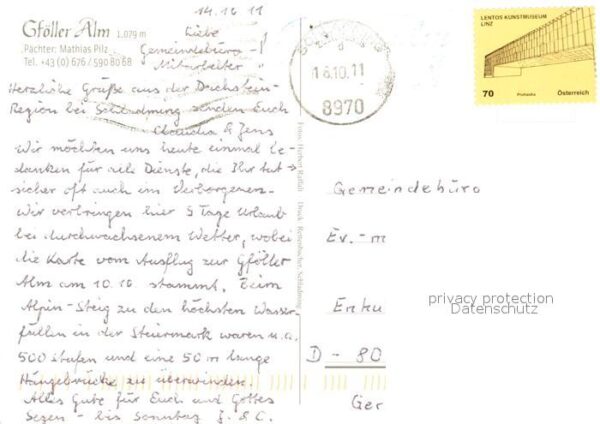 14.10.11
Gföller Alm 1.079 m
Pächter: Mathias Pilz
Tel. +43 (0) 676 / 590 80 68
Liebe
Gemeindebüro-
Mitarbeiter
Herzliche Grüße aus der Dachstein-
Region bei Schladming senden Euch
Claudia & Jens
Wir möchten uns heute einmal be-
danken für alle Dienste, die Ihr tut →
sicher oft auch im Verborgenen.
Wir verbringen hier 5 Tage Urlaub
bei durchwachsenem Wetter, wobei
die Karte vom Ausflug zur Gföller
Alm am 10.10. stammt. Beim
Alpin-Steig zu den höchsten Wasser-
fällen in der Steiermark waren u.a.
500 Stufen und eine 50 m lange
Hängebrücke zu überwinden.
Alles Gute für Euch und Gottes
Segen - bis Sonntag J. & C.
Foto: Herbert Raffalt Druck: Rettenbacher, Schladming
10.11
8970
LENTOS KUNSTMUSEUM
LINZ
70 Österreich
Gemeindebüro
Ev.-m
Enku
D - 80
Ger
privacy protection
Datenschutz